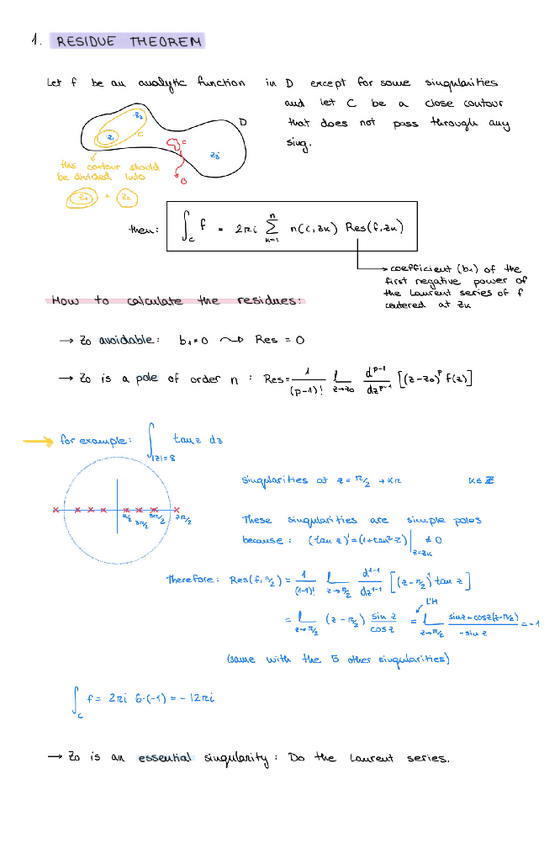 1. RESIDUE THEOREM
Let f be an analytic function in D except for some singularities
and let C be a close contour
that does not pass through any
sing.
z₂
z₁
C
D
C
z₃
0
this contour should
be divided into
z₁ + z₂
then: ∫_C f = 2πi Σ_{k=1}^{n} n(C,zk) Res(f,zk)
coefficient (b₁) of the
first negative power of
the Laurent series of f
centered at zk
How to calculate the residues:
→ z₀ avoidable: b₁=0 ⤳ Res = 0
→ z₀ is a pole of order n : Res = 1/(p-1)! L_{z→z₀} d^{p-1}/dz^{p-1} [(z-z₀)^p f(z)]
for example: ∫_{|z|=8} tan z dz
singularities at z = π/2 + kπ k∈ℤ
π/2 3π/2 5π/2
These singularities are simple poles
because: (tan z)' = (1+tan² z)|_{z=zk} ≠ 0
Therefore: Res(f,π/2) = 1/(1-1)! L_{z→π/2} d^{1-1}/dz^{1-1} [(z-π/2)^1 tan z]
= L_{z→π/2} (z-π/2) sin z/cos z = L_{z→π/2} sin z + cos z(z-π/2)/-sin z = -1
L'H
(same with the 5 other singularities)
∫_C f = 2πi 6·(-1) = -12πi
→ z₀ is an essential singularity: Do the Laurent series.